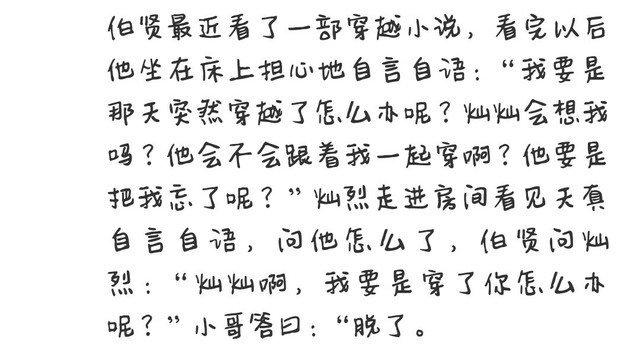 伯贤最近看了一部穿越小说，看完以后
他坐在床上担心地自言自语：“我要是
那天突然穿越了怎么办呢？灿灿会想我
吗？他会不会跟着我一起穿啊？他要是
把我忘了呢？”灿烈走进房间看见天真
自言自语，问他怎么了，伯贤问灿
烈：“灿灿啊，我要是穿了你怎么办
呢？”小哥答曰：“脱了。